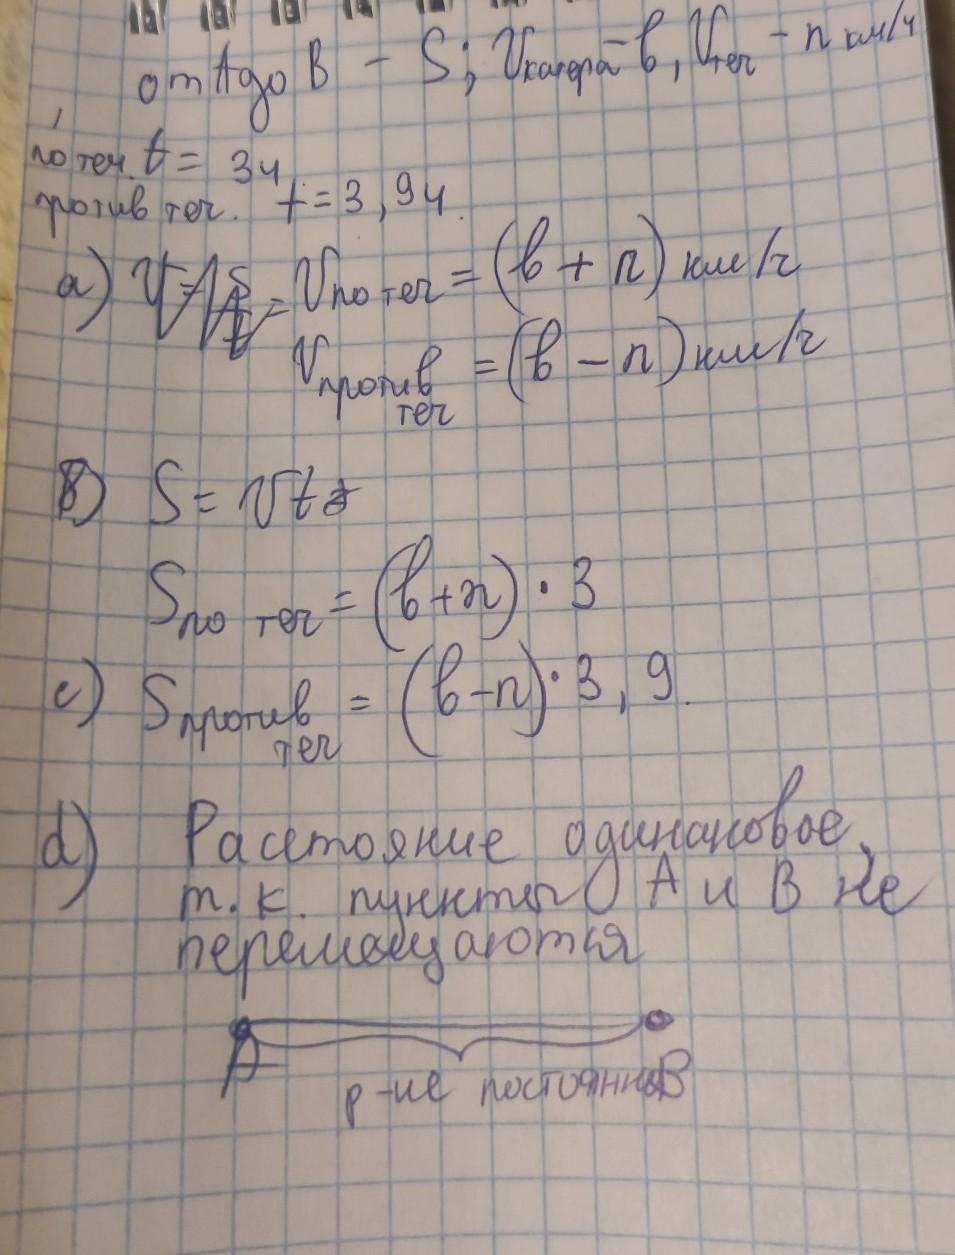 от А до В - S; Vкатера - в, Vтеч - n км/ч
по теч. t = 3ч
против теч. t = 3,9ч.
а) Vпо теч = (в + n) км/ч
Vпротив теч = (в - n) км/ч
в) S = Vt
Sпо теч = (в+n) · 3
с) Sпротив теч = (в-n) · 3,9.
d) Расстояние одинаковое,
т.к. пункты А и В не
перемещаются
А В
р-ие постоянно